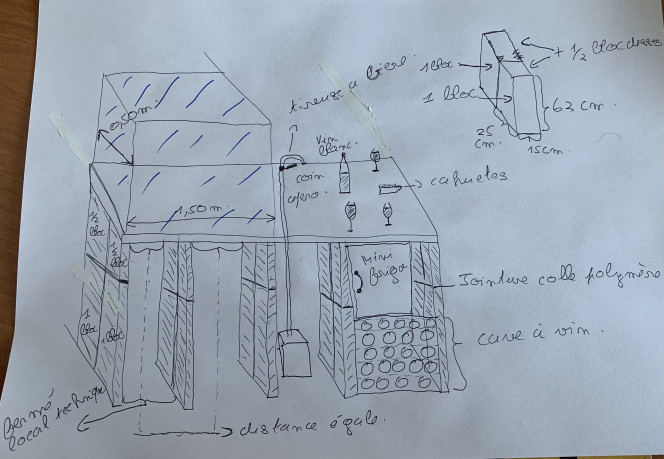 tireuse a bière.
1 bloc
+ 1/2 bloc dessus
1 bloc
63 cm.
25
cm.
15cm.
0,50m.
vin
blanc.
coin
apero
cahuetes
1,50m.
1/2
bloc
1/2
bloc
mini
frigo
Jointure colle polymère
1
bloc
1
bloc
cave à vin.
Fermé
local technique
distance égale.